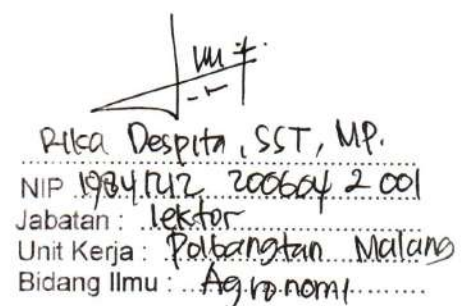 Rika Despita, SST, MP.
NIP 19841212 200604 2 001
Jabatan : lektor
Unit Kerja : Polbangtan Malang
Bidang Ilmu : Agronomi